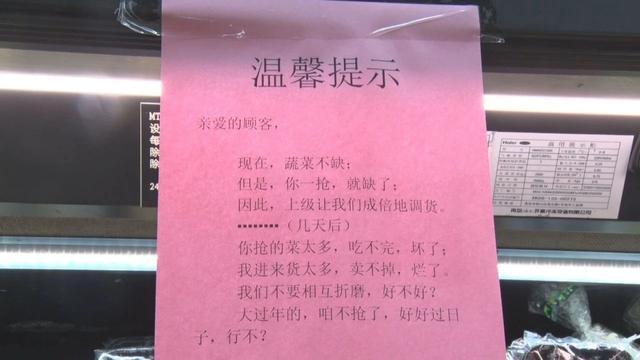 温馨提示
亲爱的顾客，
现在，蔬菜不缺；
但是，你一抢，就缺了；
因此，上级让我们成倍地调货。
▪▪▪▪▪▪▪▪▪▪（几天后）
你抢的菜太多，吃不完，坏了；
我进来货太多，卖不掉，烂了。
我们不要相互折磨，好不好？
大过年的，咱不抢了，好好过日
子，行不？
MT
设
每
除
除
24
Haier
商用展示柜